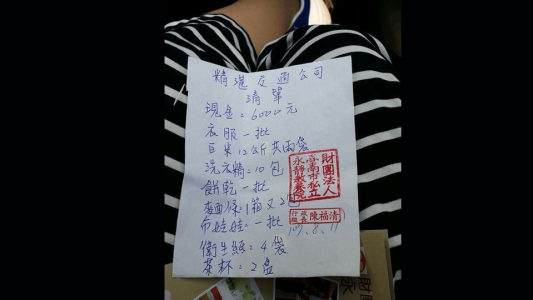 精進交通公司
清單
現金=6000元
衣服一批
白米12公斤共兩袋
洗衣精=10包
餅乾一批
麵條=1箱又2包
布娃娃=一批
衛生紙=4袋
茶杯=2盒
財團法人
臺南市私立
永靜教養院
行政組長 陳福清
107.8.11